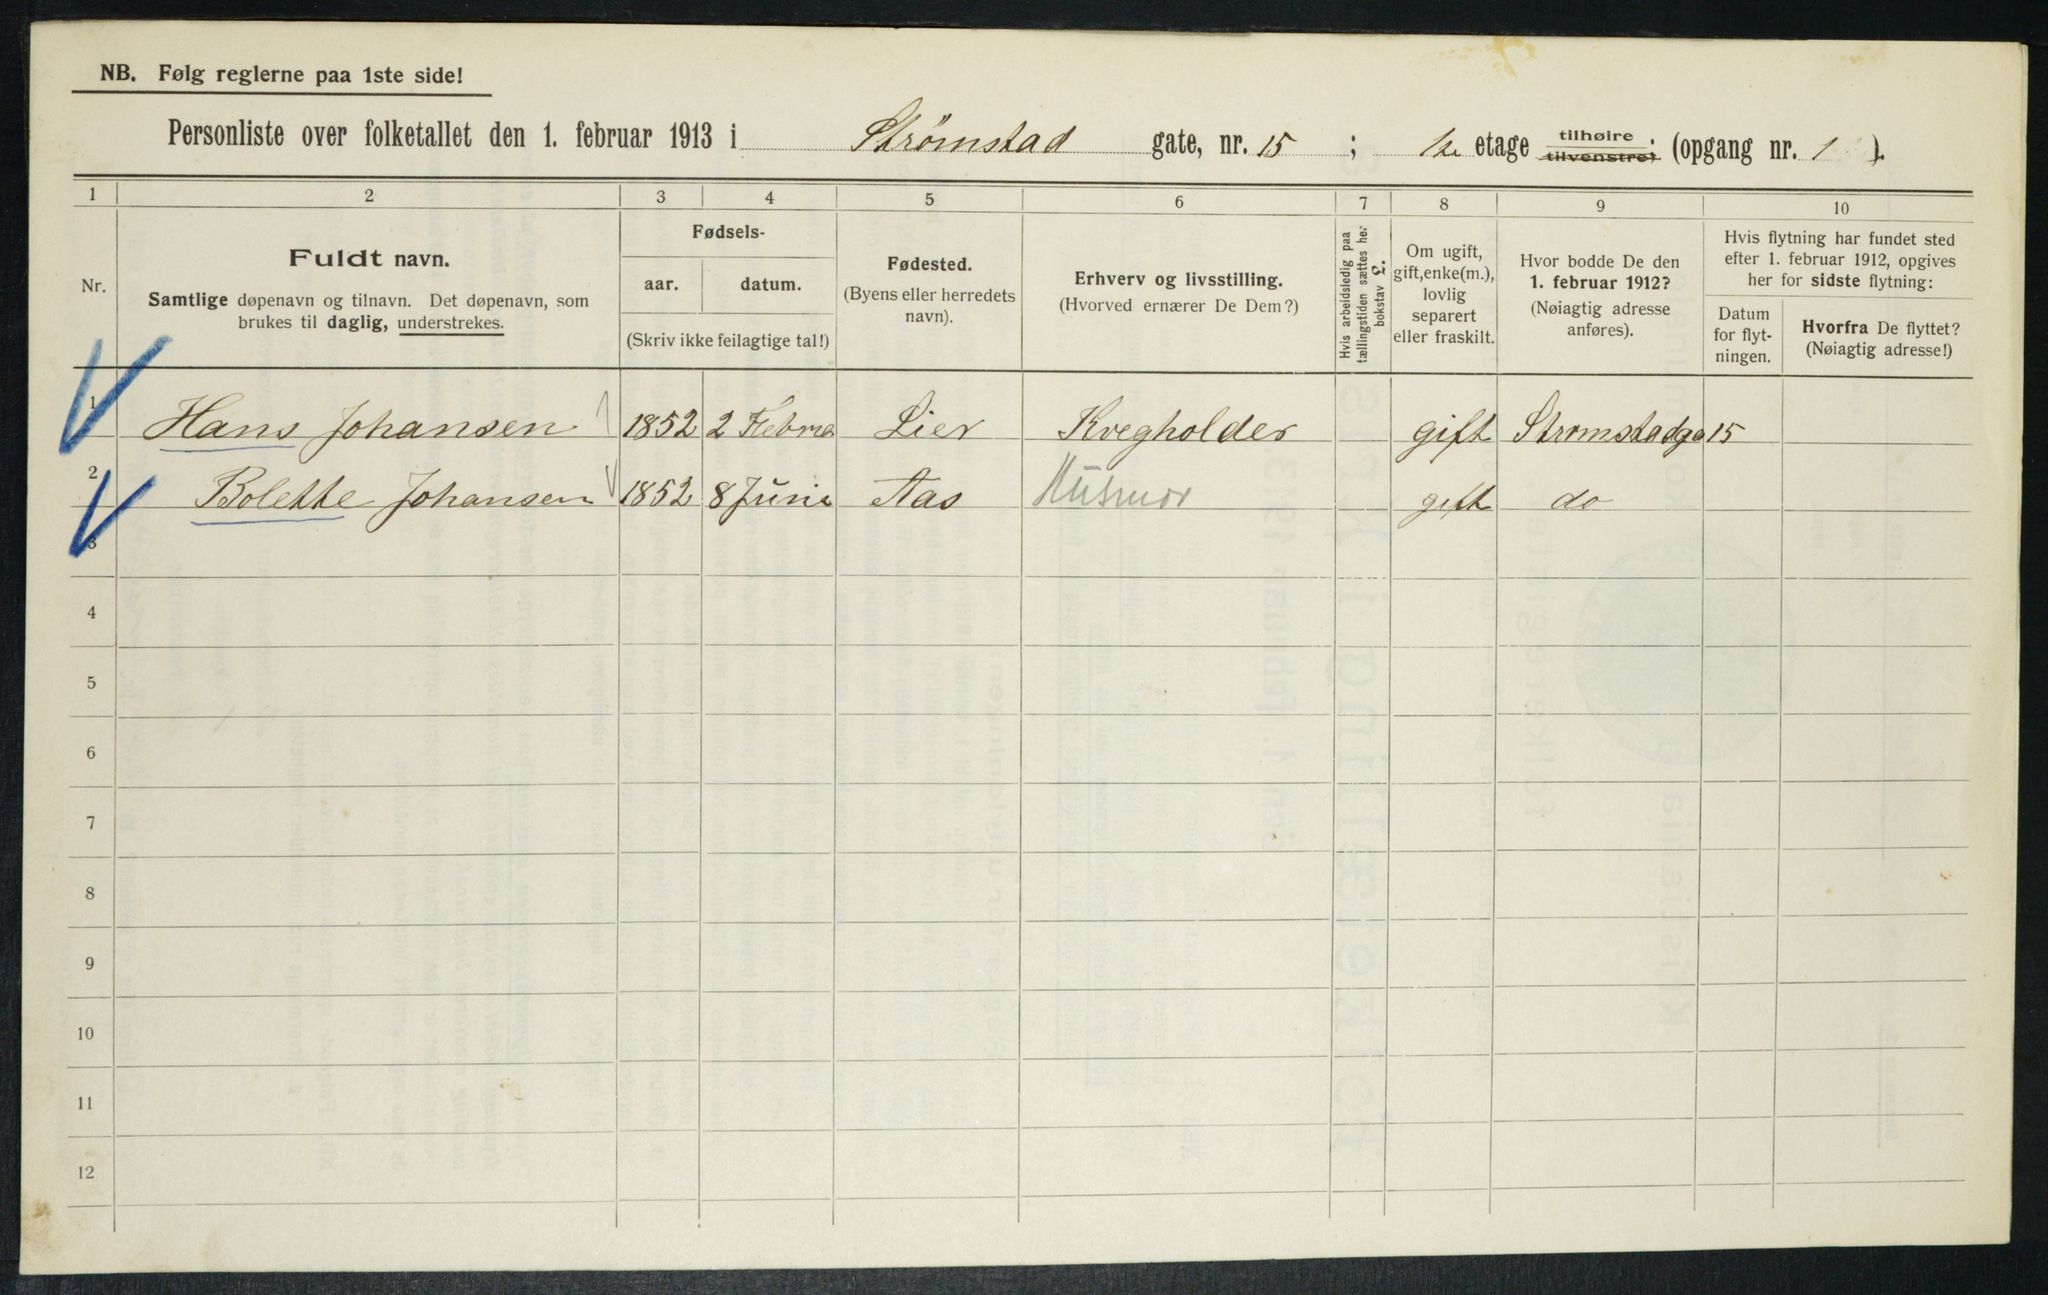 NB. Følg reglerne paa 1ste side!
Personliste over folketallet den 1. februar 1913 i Strømstad gate, nr. 15 ; 1ste etage tilhøire tilvenstre: (opgang nr. 1 ).
1 2 3 4 5 6 7 8 9 10
Nr.
Fuldt navn.
Samtlige døpenavn og tilnavn. Det døpenavn, som
brukes til daglig, understrekes.
Fødsels-
aar. datum.
(Skriv ikke feilagtige tal!)
Fødested.
(Byens eller herredets
navn).
Erhverv og livsstilling.
(Hvorved ernærer De Dem?)
Hvis arbeidsledig paa
tællingstiden sættes her
bokstav L.
Om ugift,
gift, enke(m.),
lovlig
separert
eller fraskilt.
Hvor bodde De den
1. februar 1912?
(Nøiagtig adresse
anføres).
Hvis flytning har fundet sted
efter 1. februar 1912, opgives
her for sidste flytning:
Datum
for flyt-
ningen.
Hvorfra De flyttet?
(Nøiagtig adresse!)
1 Hans Johansen 1852 2 Februa Lier Kvegholder gift Strømstadga 15
2 Bolette Johansen 1852 8 Juni Aas Husmor gift do
3
4
5
6
7
8
9
10
11
12